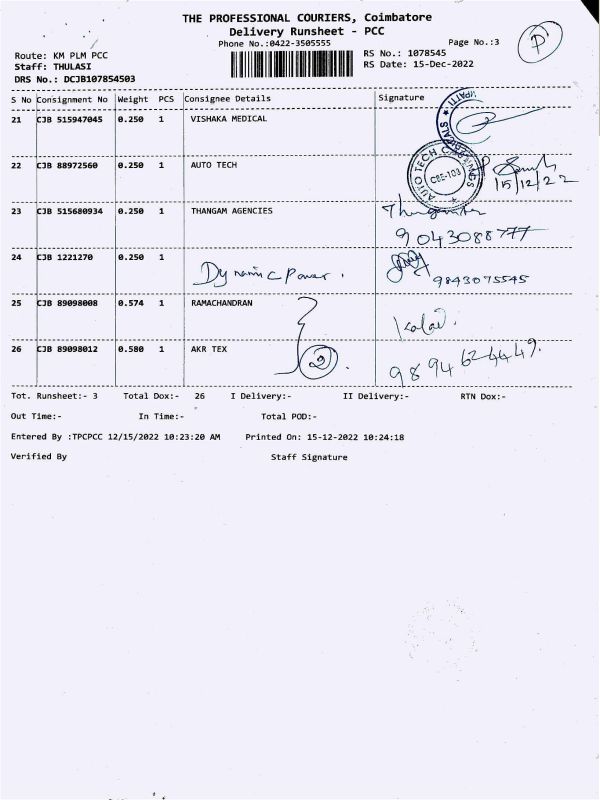 THE PROFESSIONAL COURIERS, Coimbatore
Delivery Runsheet - PCC
Phone No.:0422-3505555
Page No.:3
P
Route: KM PLM PCC
RS No.: 1078545
Staff: THULASI
RS Date: 15-Dec-2022
DRS No.: DCJB107854503
S No Consignment No Weight PCS Consignee Details Signature
21 CJB 515947045 0.250 1 VISHAKA MEDICAL
22 CJB 88972560 0.250 1 AUTO TECH
AUTO TECH COATINGS CBE-103
15/12/22
23 CJB 515680934 0.250 1 THANGAM AGENCIES
9043088777
24 CJB 1221270 0.250 1 Dynamic Power.
9843075545
25 CJB 89098008 0.574 1 RAMACHANDRAN
Kalai.
26 CJB 89098012 0.580 1 AKR TEX
2
9894624449.
Tot. Runsheet:- 3 Total Dox:- 26 I Delivery:- II Delivery:- RTN Dox:-
Out Time:- In Time:- Total POD:-
Entered By :TPCPCC 12/15/2022 10:23:20 AM Printed On: 15-12-2022 10:24:18
Verified By Staff Signature